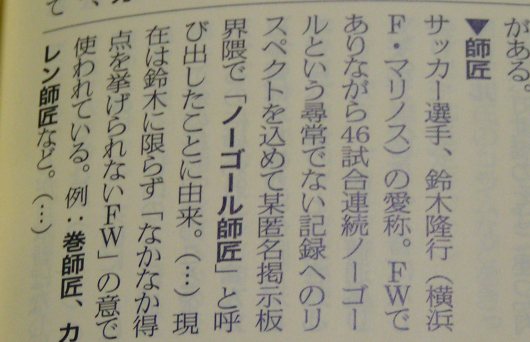 がある。
▼師匠
サッカー選手、鈴木隆行（横浜
F・マリノス）の愛称。FWで
ありながら46試合連続ノーゴー
ルという尋常でない記録へのリ
スペクトを込めて某匿名掲示板
界隈で「ノーゴール師匠」と呼
び出したことに由来。（…）現
在は鈴木に限らず「なかなか得
点を挙げられないFW」の意で
使われている。例：巻師匠、カ
レン師匠など。（…）